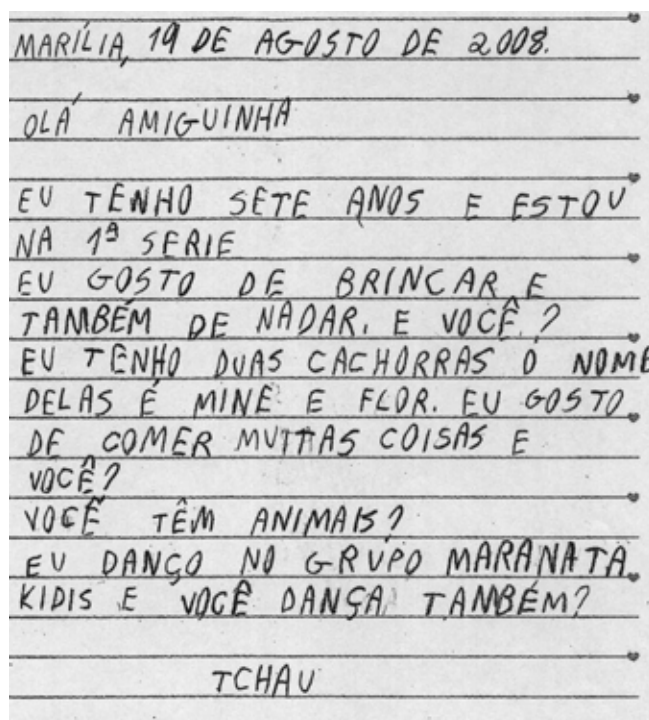 MARÍLIA, 19 DE AGOSTO DE 2008.
OLÁ AMIGUINHA
EU TENHO SETE ANOS E ESTOU
NA 1ª SERIE
EU GOSTO DE BRINCAR E
TAMBÉM DE NADAR. E VOCÊ ?
EU TENHO DUAS CACHORRAS O NOME
DELAS É MINE E FLOR. EU GOSTO
DE COMER MUITAS COISAS E
VOCÊ?
VOCÊ TÊM ANIMAIS?
EU DANÇO NO GRUPO MARANATA
KIDIS E VOCÊ DANÇA TAMBÉM?
TCHAU